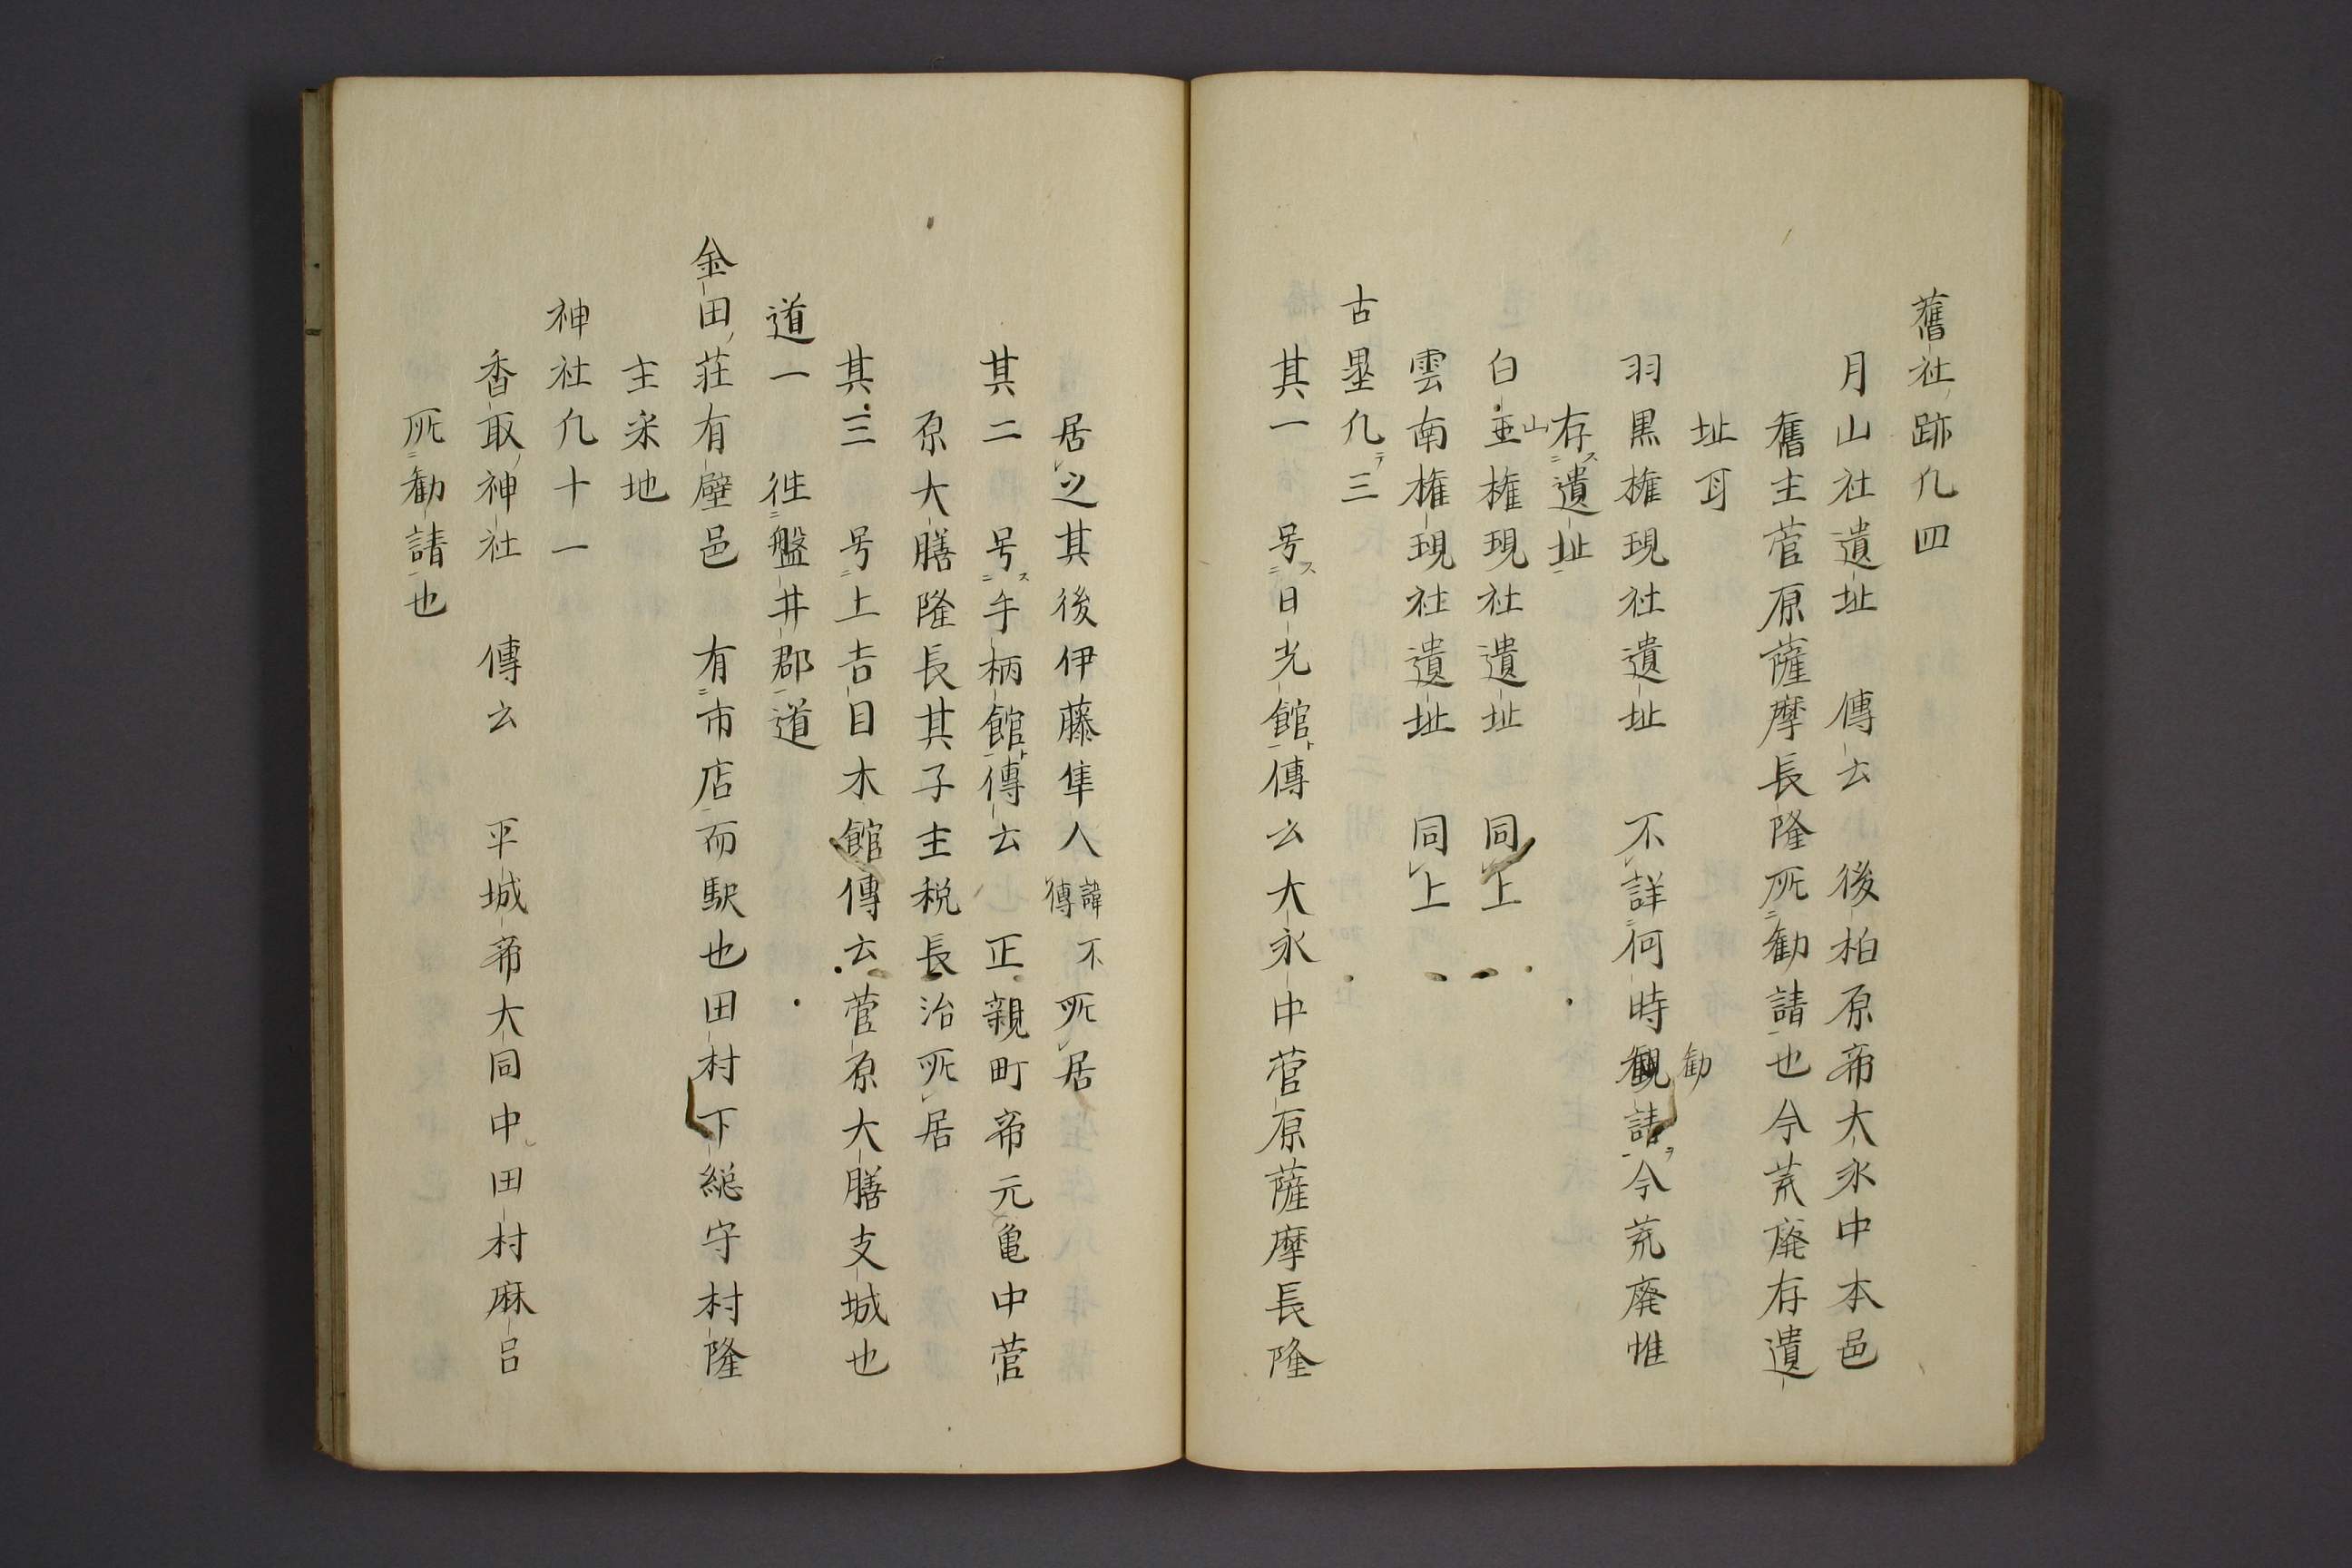 舊社跡凢四
月山社遺址　傳云　後柏原帝大永中本邑
舊主菅原薩摩長隆所勧請也今荒廃存遺
址耳
羽黒権現社遺址　不詳何時勧請今荒廃惟
存遺址
白山権現社遺址　同上
雲南権現社遺址　同上
古壘凢三
其一　号日光館傳云大永中菅原薩摩長隆
居之其後伊藤隼人諱不傳所居
其二　号手柄館傳云　正親町帝元亀中菅
原大膳隆長其子主税長治所居
其三　号上吉目木館傳云菅原大膳支城也
道一　徃盤井郡道
金田荘有壁邑　有市店而駅也田村下総守村隆
主采地
神社凢十一
香取神社　傳云　平城帝大同中田村麻呂
所勧請也